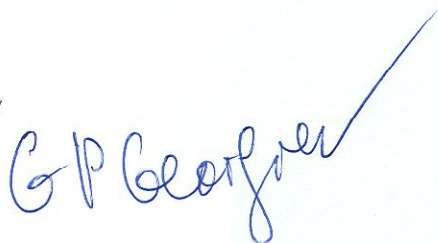 G P Georgiev